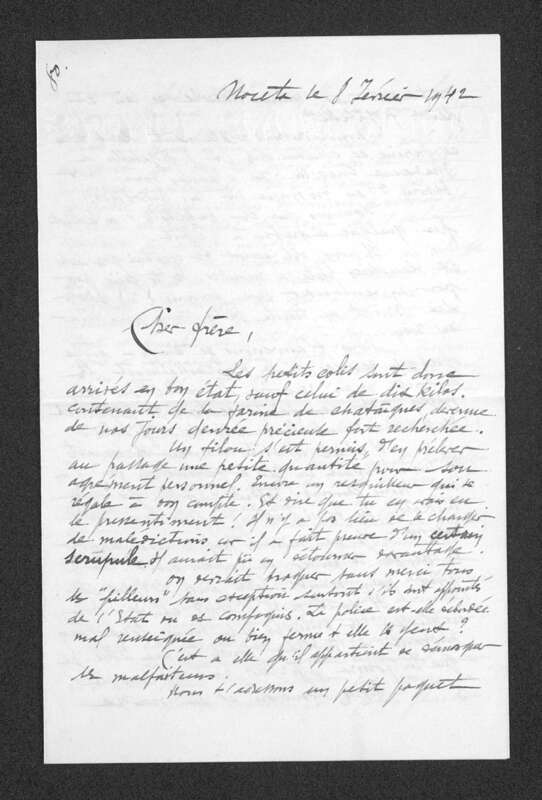 80.
Noceta le 8 Février 1942
Cher frère,
Les petits colis sont donc
arrivés en bon état, sauf celui de dix kilos.
contenant de la farine de chataignes, devenue
de nos jours denrée précieuse fort recherchée.
Un filou s'est permis, d'en prélever
au passage une petite quantité pour son
agrément personnel. Encore un resquilleur qui se
régale à bon compte. Et dire que tu en avais eu
le pressentiment! Il n'y a pas lieu de le charger
de malédictions car il a fait preuve d'un certain
scrupule. Il aurait pu en détourner davantage.
On devrait traquer sans merci tous
les "pilleurs" sans exception surtout s'ils sont appointés
de l'Etat ou es compagnis. La police est-elle
mal renseignée ou bien ferme t elle les yeux?
C'est a elle qu'il appartient de
les malfaiteurs.
Nous t'adressons un petit paquet